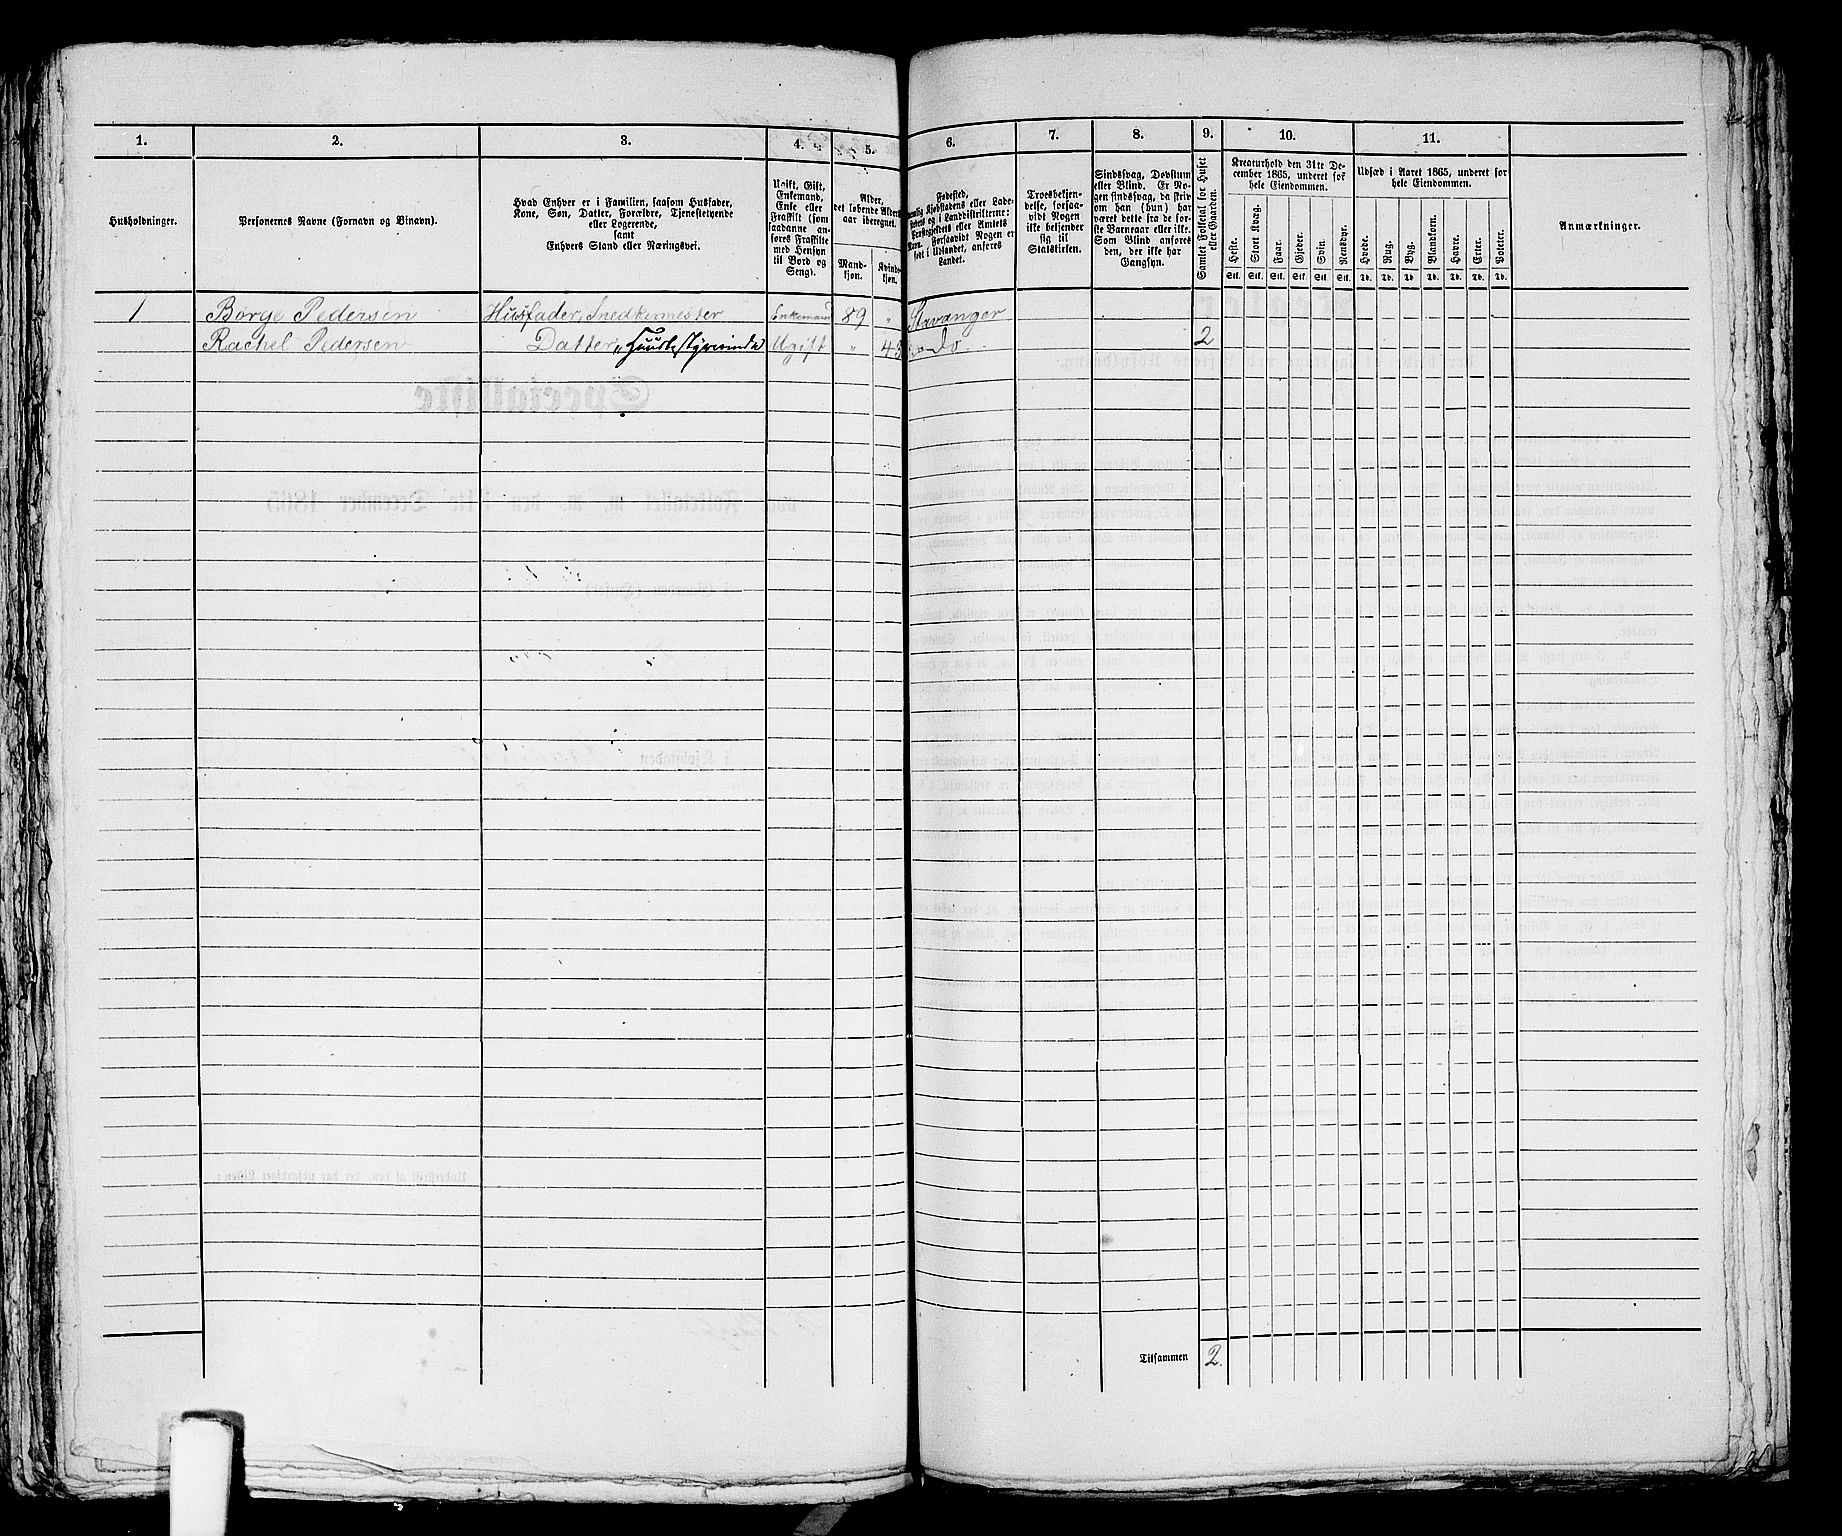 1. 2. 3. 4. 5. 6. 7. 8. 9. 10. 11.
Husholdninger.
Personernes Navne (Fornavn og Binavn).
Hvad Enhver er i Familien, saasom Husfader,
Kone, Søn, Datter, Forældre, Tjenestetyende
eller Logerende,
samt
Enhvers Stand eller Næringsvei.
Ugift, Gift,
Enkemand,
Enke eller
Fraskilt (som
saadanne an-
føres Fraskilte
med Hensyn
til Bord og
Seng).
Alder,
det løbende Alders-
aar iberegnet.
Mand-
kjøn.
Kvind-
kjøn.
Fødested,
Landet.
Troesbekjen-
delse, forsaa-
vidt Nogen
ikke bekjender
sig til
Statskirken.
Sindssvag, Døvstum
eller Blind. Er No-
gen sindssvag, da skriv
om han (hun) har
været dette fra de før-
ste Barneaar eller ikke.
Som Blind anføres
den, der ikke har
Gangsyn.
Samlet Folketal for Huset
eller Gaarden.
Kreaturhold den 31te De-
cember 1865, underet for
hele Eiendommen.
Heste. Stort Kvæg. Faar. Gjeder. Svin. Rensdyr.
Stk. Stk. Stk. Stk. Stk. Stk.
Udsæd i Aaret 1865, underet for
hele Eiendommen.
Hvede. Rug. Byg. Blandkorn. Havre. Erter. Poteter.
Td. Td. Td. Td. Td. Td. Td.
Anmærkninger.
1 Børge Pedersen Husfader, Snedkermester Enkemand 89 " Stavanger
Rachel Pedersen Datter, Huusbestyrerinde Ugift " 43 do 2
Tilsammen 2.